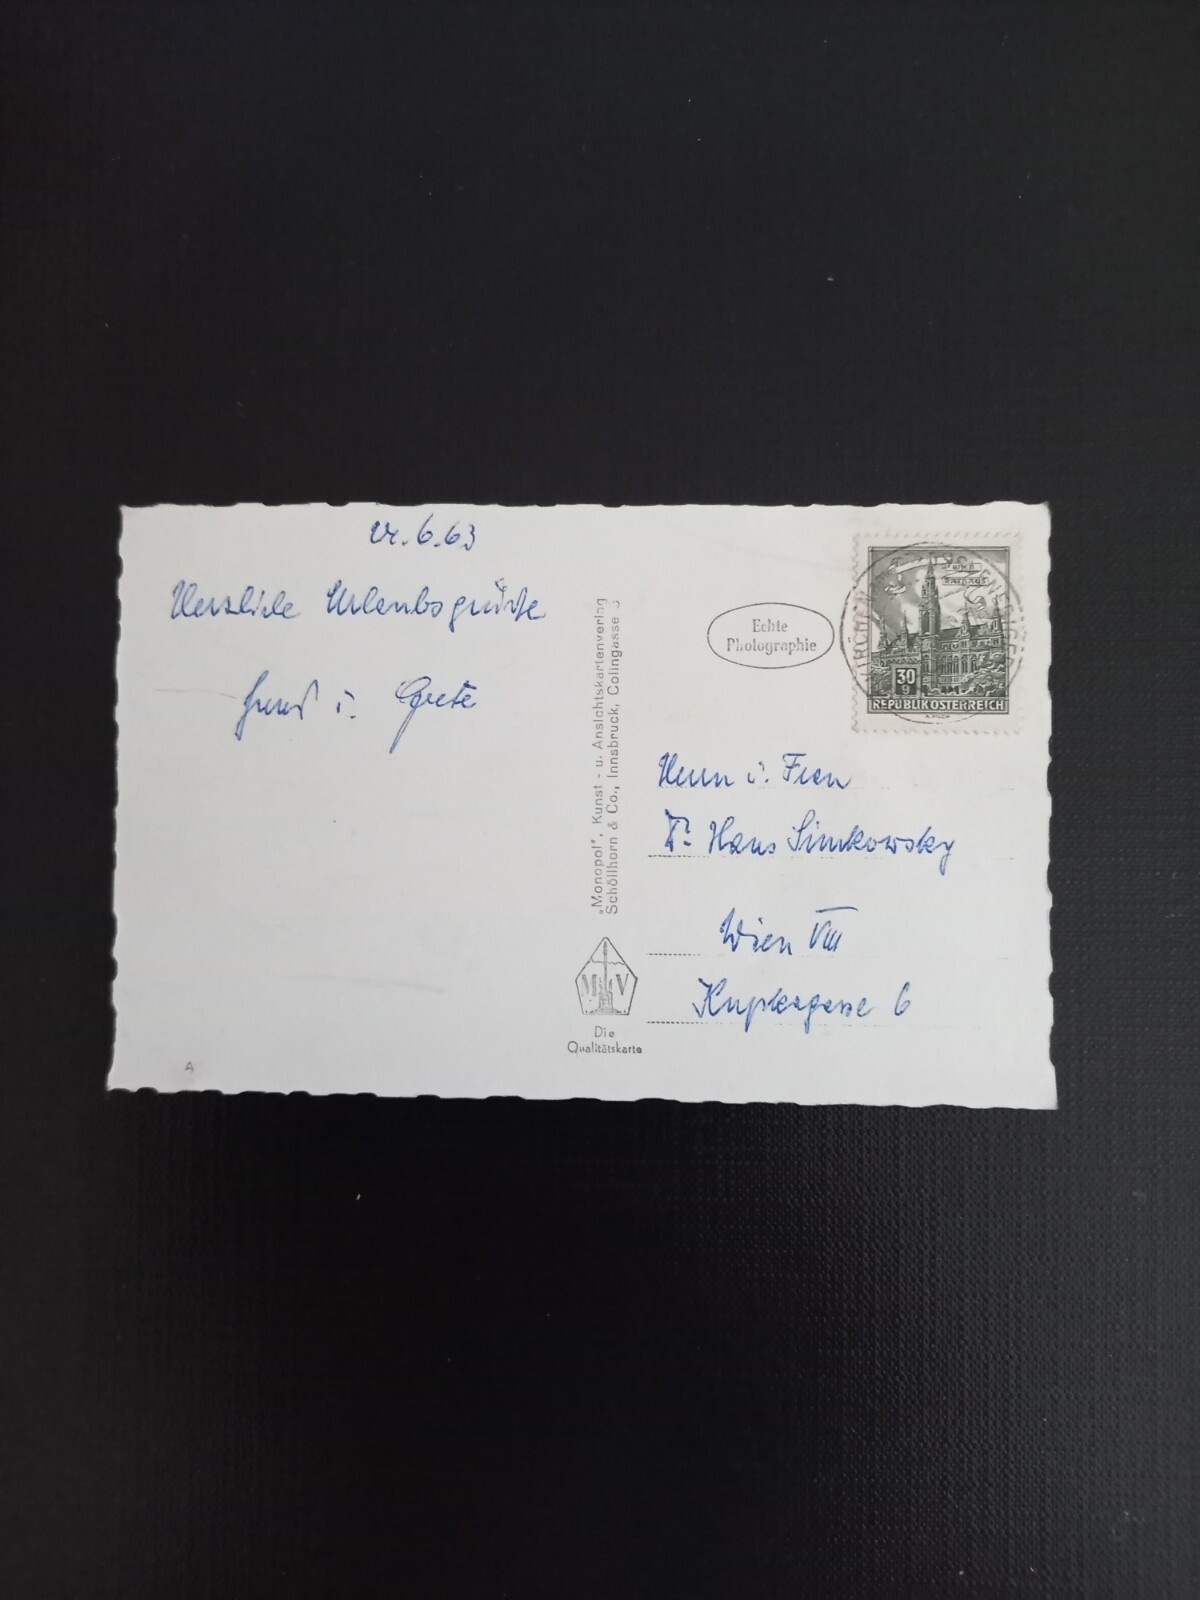 6.63
Herzliche Urlaubsgrüße
u. Grete
„Monopol", Kunst - u. Ansichtskartenverlag
Schöllhorn & Co., Innsbruck, Colingasse 3
M V
Die
Qualitätskarte
A
Echte
Photographie
WIEN
RATHAUS
30
g
REPUBLIK ÖSTERREICH
Herrn u. Frau
Dr. Hans Simkowsky
Wien VIII
Kupkagasse 6